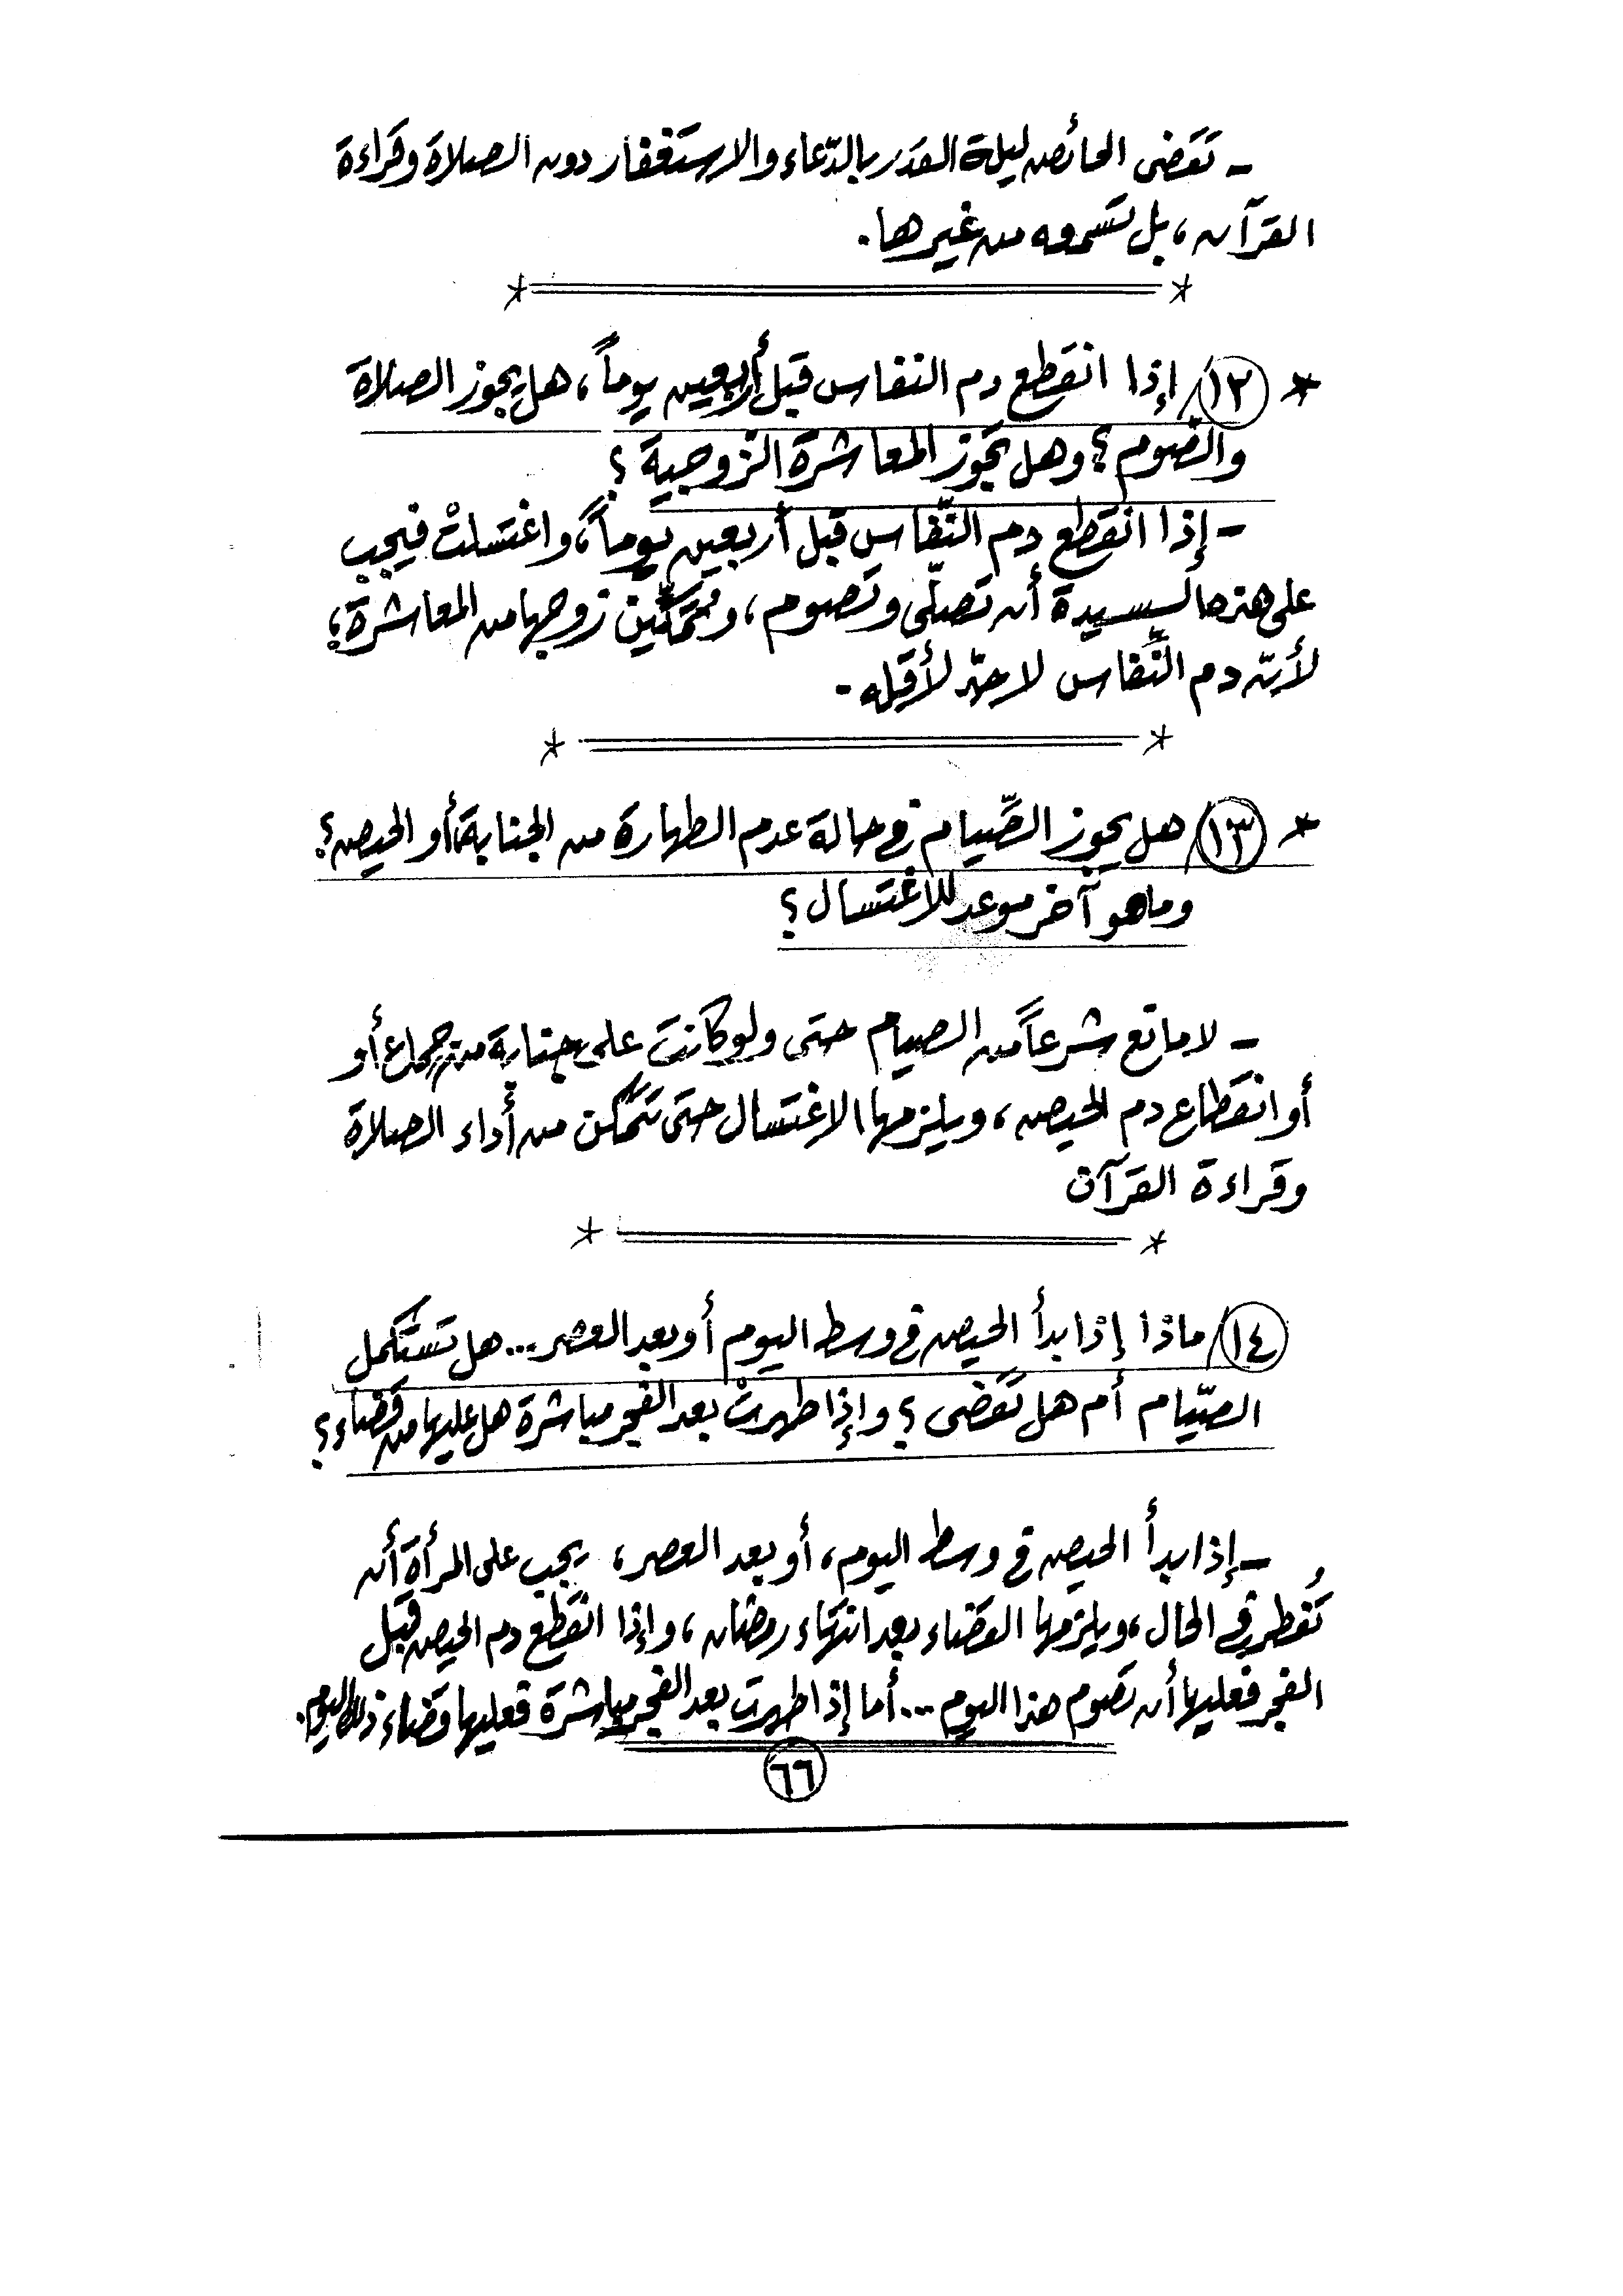 - تقضى الحائض ليلة القدر بالدّعاء والاستغفار دون الصلاة وقراءة
القرآن، بل تسمعه من غيرها.
* ١٢/ إذا انقطع دم النفاس قبل أربعين يوماً، هل يجوز الصلاة
والصّوم؟ وهل تجوز المعاشرة الزوجية؟
- إذا انقطع دم النّفاس قبل أربعين يوماً، واغتسلتْ فيجب
على هذه السيدة أن تصلّى وتصوم، وتمكّين زوجها من المعاشرة؛
لأنّ دم النِّفاس لا حدّ لأقله.
* ١٣/ هل يجوز الصِّيام فى حالة عدم الطهارة من الجنابة أو الحيض؟
وما هو آخر موعد للاغتسال؟
- لا مانع شرعاً من الصيام حتى ولو كانت على جنابة من جماع أو
أو انقطاع دم الحيض، ويلزمها الاغتسال حتى تتمكن من أداء الصلاة
وقراءة القرآن
١٤/ ماذا إذا بدأ الحيض فى وسط اليوم أو بعد العصر... هل تستكمل
الصّيام أم هل تقضى؟ وإذا طهرتْ بعد الفجر مباشرة هل عليها من قضاء؟
- إذا بدأ الحيض فى وسط اليوم، أو بعد العصر، يجب على المرأة أن
تُفطر فى الحال، ويلزمها القضاء بعد انتهاء رمضان، وإذا انقطع دم الحيض قبل
الفجر فعليها أن تصوم هذا اليوم... أما إذا طهرت بعد الفجر مباشرة فعليها قضاء ذلك اليوم.
٦٦